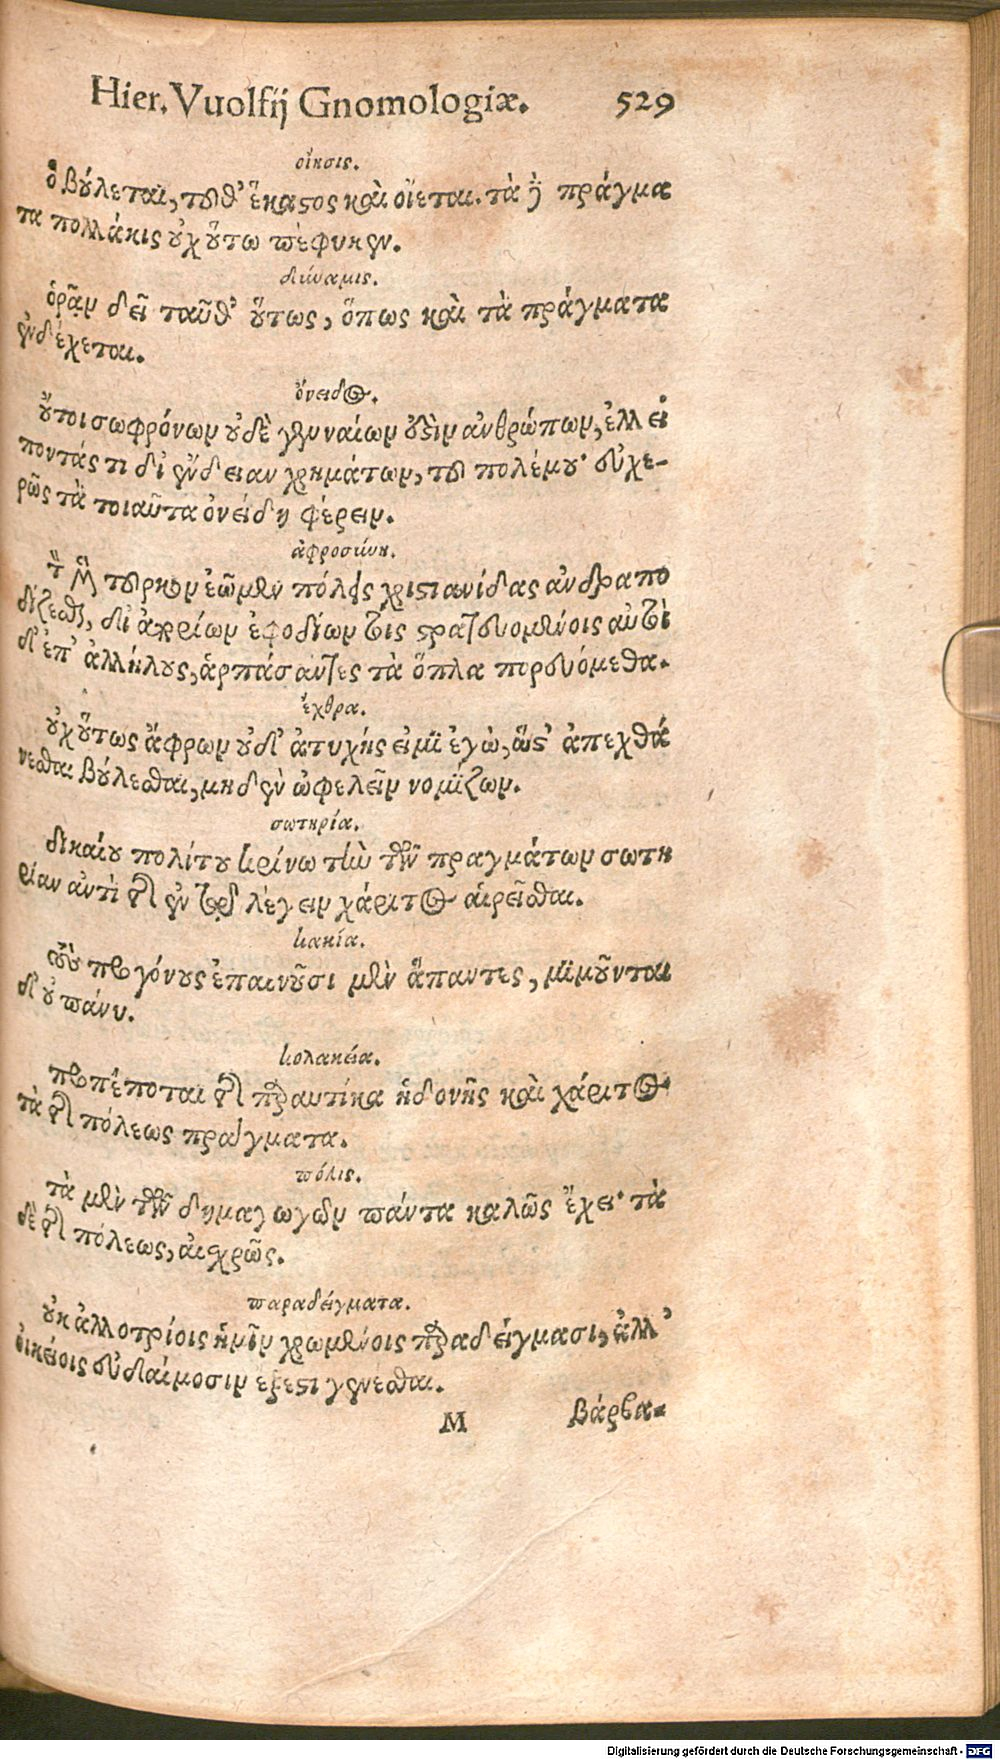 Hier. Vuolfij Gnomologiæ. 529
οἴησις.
ὃ βούλεται, τοῦθ᾽ ἕκαστος καὶ οἴεται. τὰ δὲ πράγμα
τα πολλάκις οὐχ οὕτω πέφυκεν.
δύναμις.
ὁρᾷν δεῖ ταῦθ᾽ οὕτως, ὅπως καὶ τὰ πράγματα
ἐνδέχεται.
ὄνειδος.
οὔτοι σωφρόνων οὐδὲ γενναίων ἐστὶν ἀνθρώπων, ἐλλεί
ποντάς τι δι᾽ ἔνδειαν χρημάτων, τοῦ πολέμου· εὐχε-
ρῶς τὰ τοιαῦτα ὀνείδη φέρειν.
ἀφροσύνη.
τὸν μὲν τοῦρκον ἐῶμεν πόλεις χριστιανίδας ἀνδραπο
δίζεσθαι, δι᾽ ἀχρείων ἐφοδίων τοῖς στρατευομένοις αὐτοὶ
δ᾽ ἐπ᾽ ἀλλήλους, ἁρπάσαντες τὰ ὅπλα πορευόμεθα.
ἔχθρα.
οὐχ οὕτως ἄφρων οὐδ᾽ ἀτυχής εἰμι ἐγὼ, ὥστ᾽ ἀπεχθά
νεσθαι βούλεσθαι, μηδὲν ὠφελεῖν νομίζων.
σωτηρία.
δικαίου πολίτου κρίνω τὴν τῶν πραγμάτων σωτη
ρίαν ἀντὶ τῆς ἐν τῷ λέγειν χάριτος αἱρεῖσθαι.
κακία.
τοὺς προγόνους ἐπαινοῦσι μὲν ἅπαντες, μιμοῦνται
δ᾽ οὐ πάνυ.
κολακεία.
προπέποται τῆς παραυτίκα ἡδονῆς καὶ χάριτος
τὰ τῆς πόλεως πράγματα.
πόλις.
τὰ μὲν τῶν δημαγωγῶν πάντα καλῶς ἔχει· τὰ
δὲ τῆς πόλεως, αἰσχρῶς.
παραδείγματα.
οὐκ ἀλλοτρίοις ἡμῖν χρωμένοις παραδείγμασι, ἀλλ᾽
οἰκείοις εὐδαίμοσιν ἔξεστι γενέσθαι.
M βάρβα-
Digitalisierung gefördert durch die Deutsche Forschungsgemeinschaft - DFG